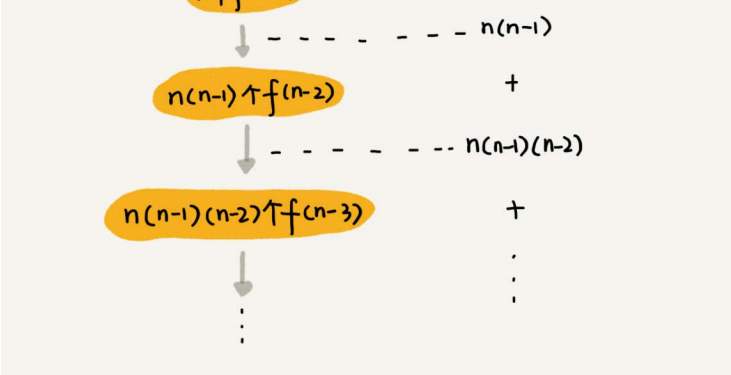 n(n-1)
n(n-1)个f(n-2)
+
n(n-1)(n-2)
n(n-1)(n-2)个f(n-3)
+